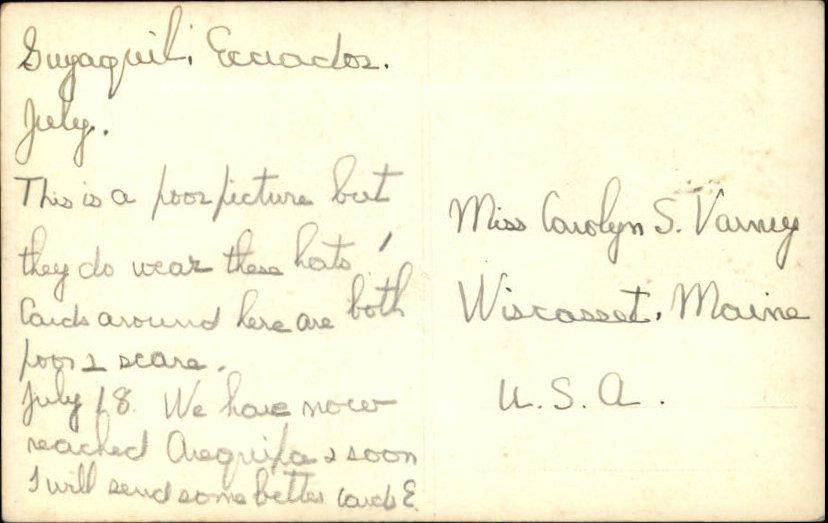 Guyaquil, Ecuador.
July.
This is a poor picture but
they do wear these hats!
Cards around here are both
poor & scare.
July 18. We have now
reached Arequipa & soon
I will send some better cards E.
Miss Carolyn S. Varney
Wiscasset, Maine
U.S.A.